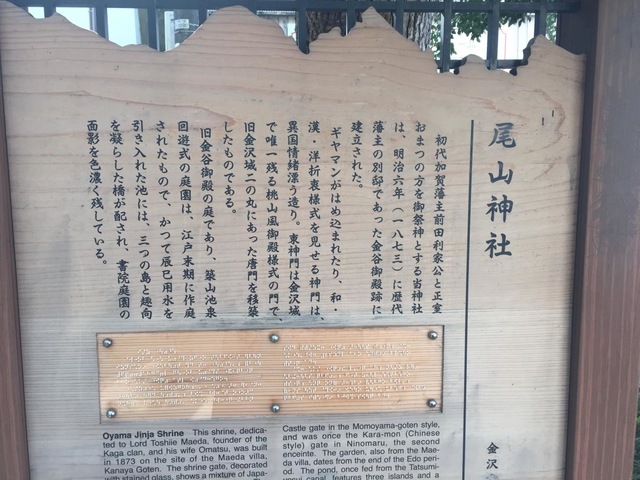 尾山神社
初代加賀藩主前田利家公と正室
おまつの方を御祭神とする当神社
は、明治六年（一八七三）に歴代
藩主の別邸であった金谷御殿跡に
建立された。
ギヤマンがはめ込まれたり、和・
漢・洋折衷様式を見せる神門は、
異国情緒漂う造り。東神門は金沢城
で唯一残る桃山風御殿様式の門で、
旧金沢城二の丸にあった唐門を移築
したものである。
旧金谷御殿の庭であり、築山池泉
回遊式の庭園は、江戸末期に作庭
されたもので、かつて辰巳用水を
引き入れた池には、三つの島と趣向
を凝らした橋が配され、書院庭園の
面影を色濃く残している。
金沢
Oyama Jinja Shrine This shrine, dedica-
ted to Lord Toshiie Maeda, founder of the
Kaga clan, and his wife Omatsu, was built
in 1873 on the site of the Maeda villa,
Kanaya Goten. The shrine gate, decorated
with stained glass, shows a mixture of Japa-
Castle gate in the Momoyama-goten style,
and was once the Kara-mon (Chinese
style) gate in Ninomaru, the second
enceinte. The garden, also from the Mae-
da villa, dates from the end of the Edo peri-
od. The pond, once fed from the Tatsumi-
yosui canal, features three islands and a